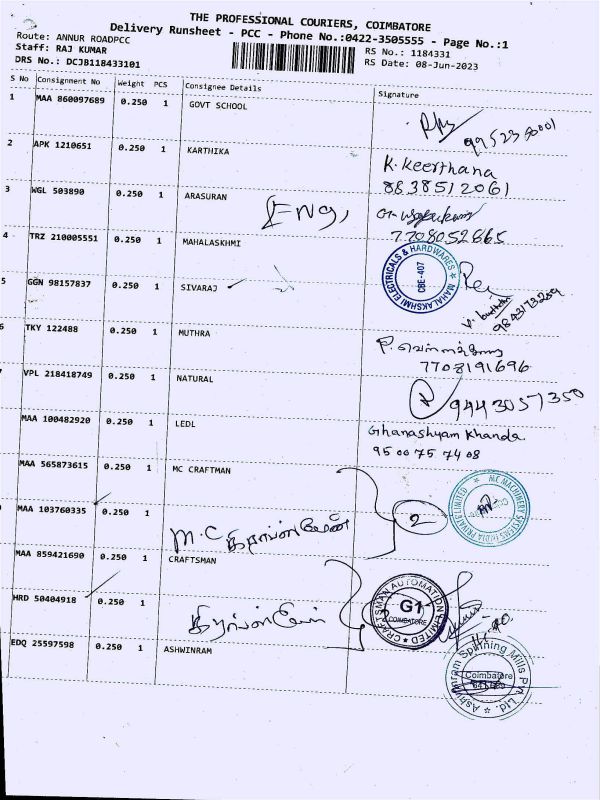 THE PROFESSIONAL COURIERS, COIMBATORE
Delivery Runsheet - PCC - Phone No.:0422-3505555 - Page No.:1
Route: ANNUR ROADPCC
Staff: RAJ KUMAR
RS No.: 1184331
DRS No.: DCJB118433101
RS Date: 08-Jun-2023
S No Consignment No Weight PCS Consignee Details Signature
1 MAA 860097689 0.250 1 GOVT SCHOOL
2 APK 1210651 0.250 1 KARTHIKA K. Keerthana
8838512061
3 WGL 503890 0.250 1 ARASURAN
7708052865
4 TRZ 210005551 0.250 1 MAHALASKHMI
MAHALAKSHMI ELECTRICALS & HARDWARES
CBE-407
5 GGN 98157837 0.250 1 SIVARAJ
9843173259
6 TKY 122488 0.250 1 MUTHRA
7708191696
VPL 218418749 0.250 1 NATURAL 9443057350
MAA 100482920 0.250 1 LEDL Ghanashyam Khanda
95 00 75 74 08
MAA 565873615 0.250 1 MC CRAFTMAN
MC MACHINERY SYSTEMS INDIA PRIVATE LIMITED
MAA 103760335 0.250 1
2
M.C
MAA 859421690 0.250 1 CRAFTSMAN
CRAFTSMAN AUTOMATION LIMITED
G1
COIMBATORE
HRD 50404918 0.250 1
EDQ 25597598 0.250 1 ASHWINRAM
Ashwinram Spinning Mills Pvt. Ltd.
Coimbatore